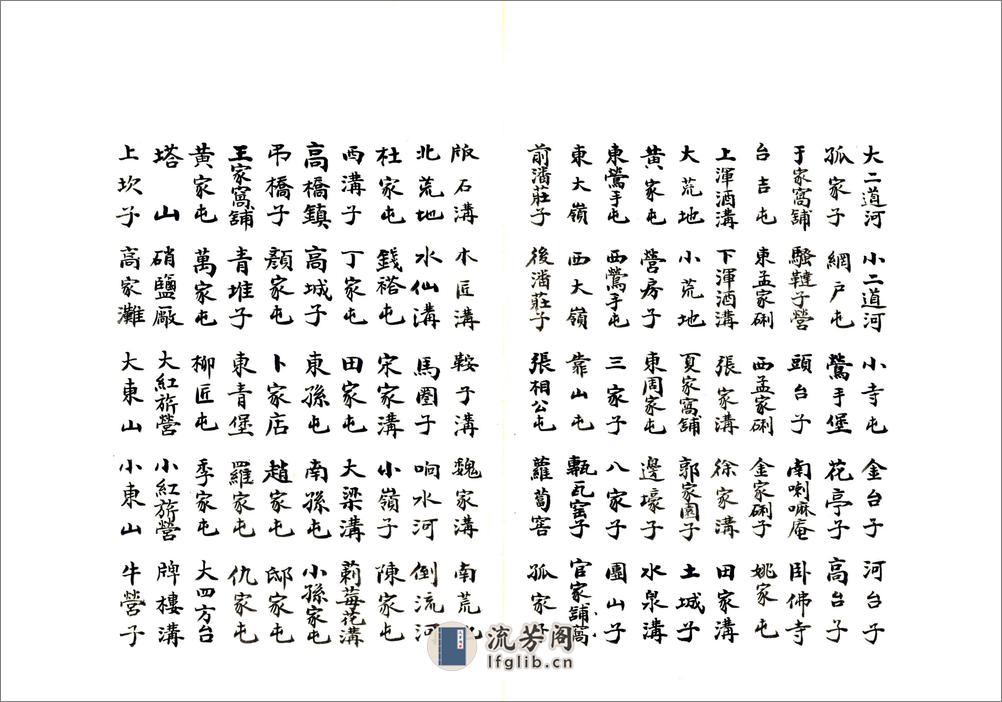 大二道河 小二道河 小寺屯 金台子 河台子
孤家子 網戶屯 鶯手堡 花亭子 高台子
于家窩舖 騷韃子營 頭台子 南喇嘛庵 卧佛寺
台吉屯 東孟家硎 西孟家硎 金家硎子 姚家屯
上渾酒溝 下渾酒溝 張家溝 徐家溝 田家溝
大荒地 小荒地 夏家窩舖 郭家園子 土城子
黃家屯 營房子 東周家屯 邊壕子 水泉溝
東鶯手屯 西鶯手屯 三家子 八家子 團山子
東大嶺 西大嶺 靠山屯 甎瓦窑子 官家舖
前潘莊子 後潘莊子 張相公屯 蘿蔔窖 孤家子
版石溝 木匠溝 鞍子溝 魏家溝 南荒
北荒地 水仙溝 馬圈子 响水河 倒流河
杜家屯 錢褡屯 宋家溝 小嶺子 陳家屯
西溝子 丁家屯 田家屯 大梁溝 莿莓花溝
高橋鎮 高城子 東孫屯 南孫屯 小孫家屯
弔橋子 顏家屯 卜家店 趙家屯 邸家屯
王家窩舖 青堆子 東青堡 羅家屯 仇家屯
黃家屯 萬家屯 柳匠屯 季家屯 大四方台
塔山 硝鹽廠 大紅旂營 小紅旂營 牌樓溝
上坎子 高家灘 大東山 小東山 牛營子
流芳阁
lfglib.cn